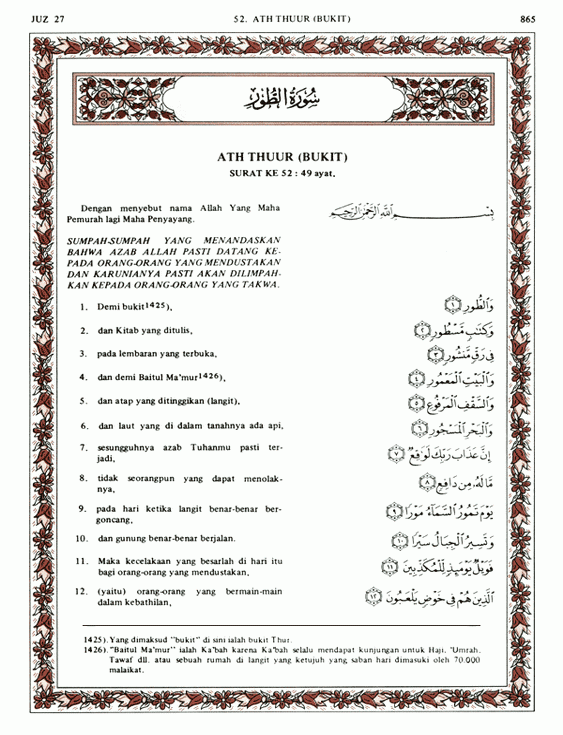 JUZ 27
52. ATH THUUR (BUKIT)
865
سُورَةُ الطُّورِ
ATH THUUR (BUKIT)
SURAT KE 52 : 49 ayat.
Dengan menyebut nama Allah Yang Maha
Pemurah lagi Maha Penyayang.
بِسْمِ اللَّهِ الرَّحْمَٰنِ الرَّحِيمِ
SUMPAH-SUMPAH YANG MENANDASKAN
BAHWA AZAB ALLAH PASTI DATANG KE-
PADA ORANG-ORANG YANG MENDUSTAKAN
DAN KARUNIANYA PASTI AKAN DILIMPAH-
KAN KEPADA ORANG-ORANG YANG TAKWA.
1. Demi bukit1425),
وَالطُّورِ ١
2. dan Kitab yang ditulis,
وَكِتَابٍ مَّسْطُورٍ ٢
3. pada lembaran yang terbuka,
فِي رَقٍّ مَّنشُورٍ ٣
4. dan demi Baitul Ma'mur1426),
وَالْبَيْتِ الْمَعْمُورِ ٤
5. dan atap yang ditinggikan (langit),
وَالسَّقْفِ الْمَرْفُوعِ ٥
6. dan laut yang di dalam tanahnya ada api,
وَالْبَحْرِ الْمَسْجُورِ ٦
7. sesungguhnya azab Tuhanmu pasti ter-
jadi,
إِنَّ عَذَابَ رَبِّكَ لَوَاقِعٌ ٧
8. tidak seorangpun yang dapat menolak-
nya,
مَّا لَهُ مِن دَافِعٍ ٨
9. pada hari ketika langit benar-benar ber-
goncang,
يَوْمَ تَمُورُ السَّمَاءُ مَوْرًا ٩
10. dan gunung benar-benar berjalan.
وَتَسِيرُ الْجِبَالُ سَيْرًا ١٠
11. Maka kecelakaan yang besarlah di hari itu
bagi orang-orang yang mendustakan,
فَوَيْلٌ يَوْمَئِذٍ لِّلْمُكَذِّبِينَ ١١
12. (yaitu) orang-orang yang bermain-main
dalam kebathilan,
الَّذِينَ هُمْ فِي خَوْضٍ يَلْعَبُونَ ١٢
1425). Yang dimaksud "bukit" di sini ialah bukit Thur.
1426). "Baitul Ma'mur" ialah Ka'bah karena Ka'bah selalu mendapat kunjungan untuk Haji, 'Umrah,
Tawaf dll. atau sebuah rumah di langit yang ketujuh yang saban hari dimasuki oleh 70.000
malaikat.